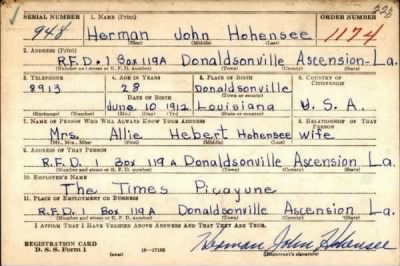 223
SERIAL NUMBER 1. NAME (Print) ORDER NUMBER
948 Herman John Hohensee 1174
(First) (Middle) (Last)
2. ADDRESS (Print)
R.F.D. 1 Box 119A Donaldsonville Ascension La.
(Number and street or R. F. D. number) (Town) (County) (State)
3. TELEPHONE 4. AGE IN YEARS 5. PLACE OF BIRTH 6. COUNTRY OF CITIZENSHIP
8913 28 Donaldsonville
DATE OF BIRTH (Town or county)
June 10 1912 Louisiana U.S.A.
(Exchange) (Number) (Mo.) (Day) (Yr.) (State or country)
7. NAME OF PERSON WHO WILL ALWAYS KNOW YOUR ADDRESS 8. RELATIONSHIP OF THAT PERSON
Mrs. Allie Hebert Hohensee wife
(Mr., Mrs., Miss) (First) (Middle) (Last)
9. ADDRESS OF THAT PERSON
R.F.D. 1 Box 119A Donaldsonville Ascension La.
(Number and street or R. F. D. number) (Town) (County) (State)
10. EMPLOYER'S NAME
The Times Picayune
11. PLACE OF EMPLOYMENT OR BUSINESS
R.F.D. 1 Box 119A Donaldsonville Ascension La.
(Number and street or R. F. D. number) (Town) (County) (State)
I AFFIRM THAT I HAVE VERIFIED ABOVE ANSWERS AND THAT THEY ARE TRUE.
REGISTRATION CARD
D. S. S. Form 1 (over) 16—17105 Herman John Hohensee
(Registrant's signature)